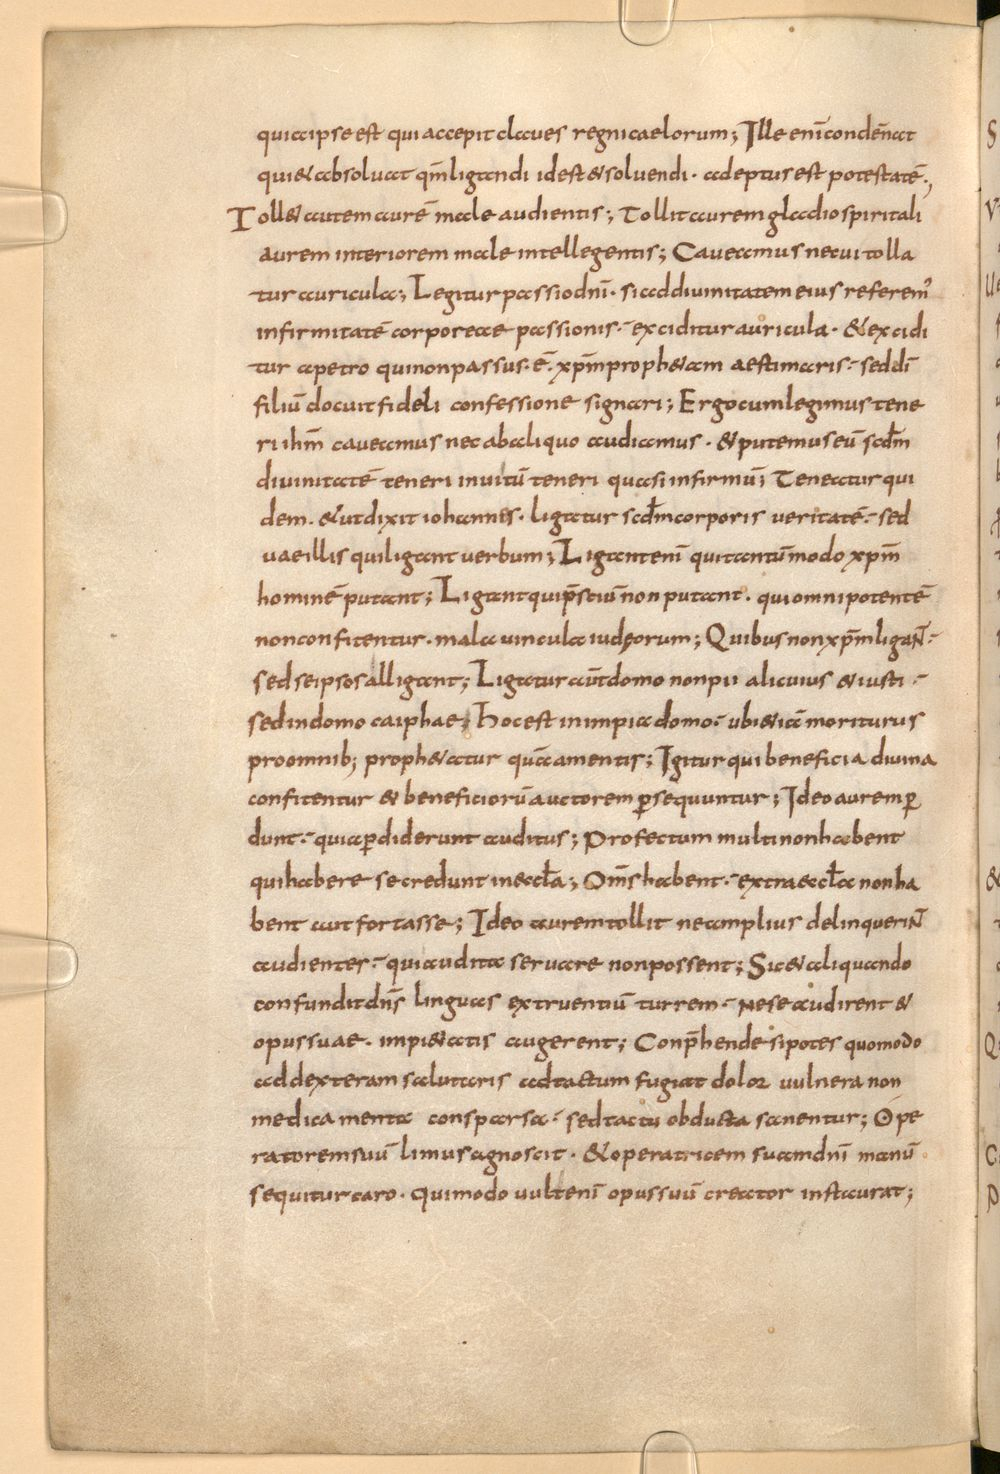 quia ipse est qui accepit claues regni caelorum; Ille enī condēnat
qui & absoluat qm̄ ligandi id est & soluendi · adeptus est potestatē.,
Toll& autem aurē male audientis; Tollit aurem gladio spiritali
aurem interiorem male intellegentis; Caueamus ne cui tolla
tur auricula; Legitur passio dn̄i · si ad diuinitatem eius referem᷒
infirmitatē corporeae passionis ·- exciditur auricula · & excidi
tur a petro qui non passus · ē · xp̄m proph&am aestimaris ·- sed dī
filiū docuit fideli confessione signari; Ergo cum legimus tene
ri ihm̄ caueamus nec ab aliquo audiamus · & putemus eū scd̄m
diuinitatē teneri inuitū teneri quasi infirmū; Teneatur qui
dem · & ut dixit iohannis · ligatur scd̄m corporis veritatē ·- sed
vae illis qui ligant verbum; Ligant enī qui tantūmodo xpm̄
hominē putant; Ligant qui p̄sciū non putant · qui omnipotentē
non confitentur · mala uincula iudęorum; Quibus non xp̄m ligaN̄ ·-
sed se ipsos alligant; Ligatur aūt domo non pii alicuius & iusti ·-
sed in domo caiphae; Hoc est in impia domo ·- ubi & iā moriturus
pro omnib; proph&atur quā amentis; Igitur qui beneficia diuina
confitentur & beneficiorū auctorem ꝑsequuntur; Ideo aurem ꝑ
dunt ·- quia ꝑdiderunt auditus; Profectum multi non habent
qui habere se credunt in eccl̄a; Om̄s habent ·- extra eccl̄a non ha
bent aut fortasse; Ideo aurem tollit ne amplius delinqueriN̄
audientes ·- qui audita seruare non possent; Sic & aliquando
confundit dn̄s linguas extruentiū turrem ·- ne se audirent &
opus suae · impi&atis augerent; Conp̄hende si potes quomodo
ad dexteram salutaris ad tactum fugiat dolor uulnera non
medicamenta consparsa ·- sed tactu obducta sanentur; Ope
ratorem suū limus agnoscit · & operatricem suam dn̄i manū
sequitur caro · quimodo uult enī opus suū creator instaurat;